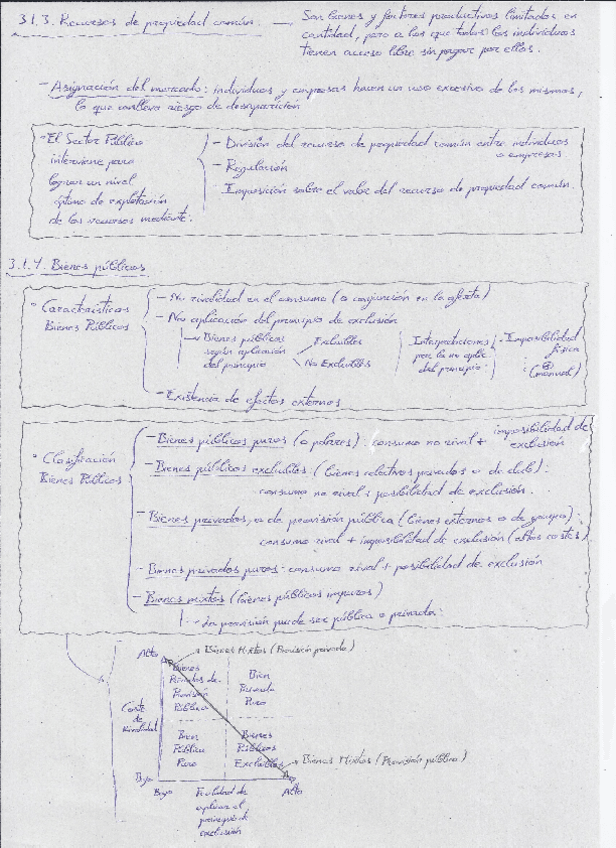 3.1.3. Recursos de propiedad común. → Son bienes y factores productivos limitados en
cantidad, pero a los que todos los individuos
tienen acceso libre sin pagar por ellos.
- Asignación del mercado: individuos y empresas hacen un uso excesivo de los mismos,
lo que conlleva riesgo de desaparición
• El Sector Público
interviene para
lograr un nivel
óptimo de explotación
de los recursos mediante:
- División del recurso de propiedad común entre individuos
o empresas
- Regulación
- Imposición sobre el valor del recurso de propiedad común.
3.1.4. Bienes públicos
• Características
Bienes Públicos
- No rivalidad en el consumo (o conjunción en la oferta)
- No aplicación del principio de exclusión
→ Bienes públicos
según aplicación
del principio
Excluibles
No Excluibles
por la no aplic.
del principio:
- Imposibilidad
física
(manual)
- Existencia de efectos externos
• Clasificación
Bienes Públicos
- Bienes públicos puros (o polares): consumo no rival + imposibilidad de
exclusión
- Bienes públicos excluibles (bienes relativos privados o de club):
consumo no rival + posibilidad de exclusión.
- Bienes privados, o de provisión pública (bienes externos o de grupo):
consumo rival + imposibilidad de exclusión (altos costes)
- Bienes privados puros: consumo rival + posibilidad de exclusión
- Bienes mixtos (bienes públicos impuros)
→ La provisión puede ser pública o privada:
Alto
Bienes Mixtos (Provisión privada)
Bienes
Privados de
Provisión
Pública
Bien
Privado
Puro
Coste
de
Rivalidad
Bien
Público
Puro
Bienes
Públicos
Excluibles
Bienes Mixtos (Provisión pública)
Bajo
Bajo
Facilidad de
aplicar el
principio de
exclusión
Alto